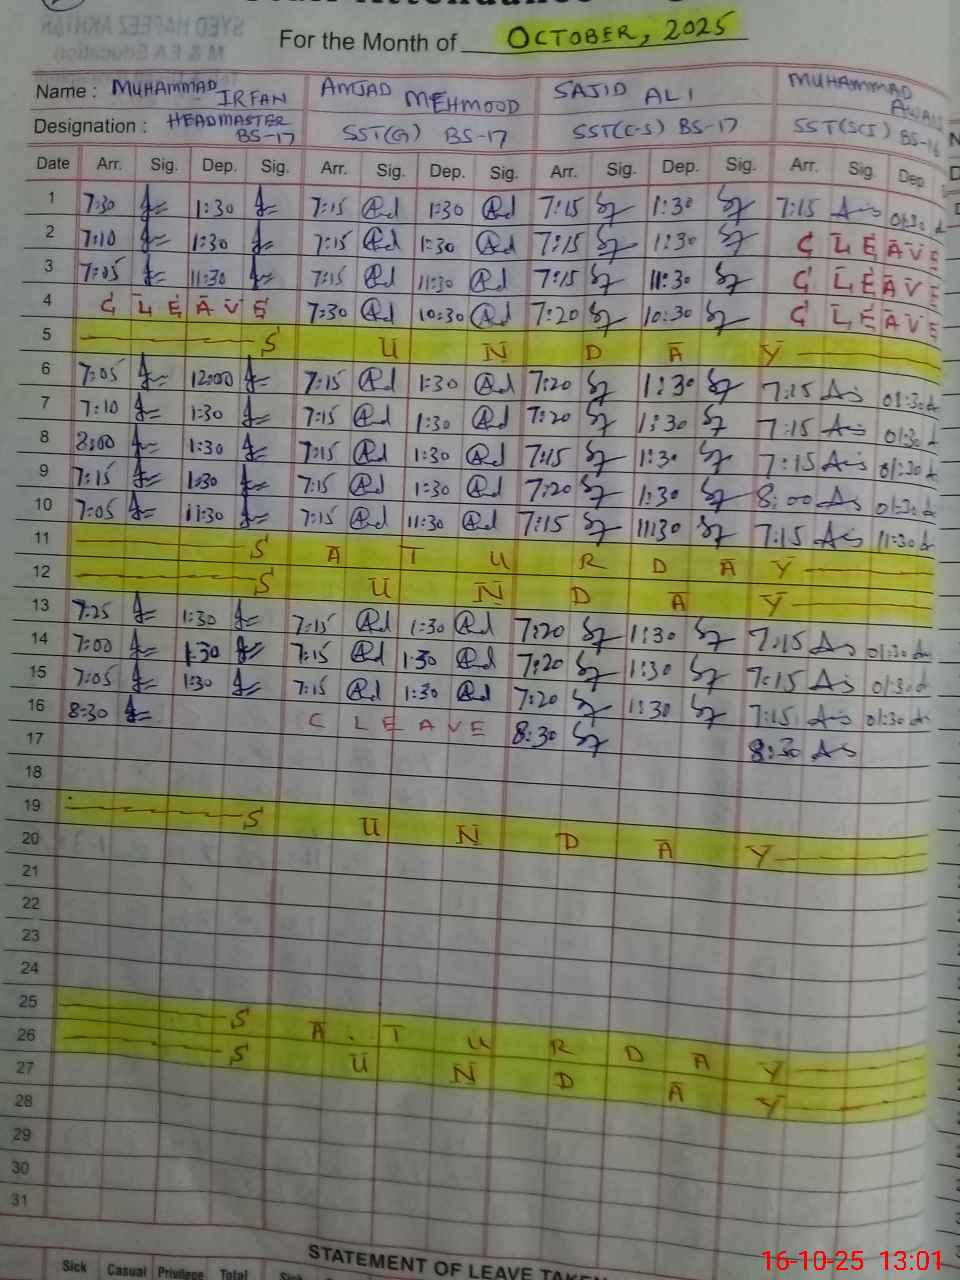 For the Month of OCTOBER, 2025
Name : MUHAMMAD IRFAN AMJAD MEHMOOD SAJID ALI MUHAMMAD
Designation : HEADMASTER BS-17 SST(G) BS-17 SST(C-S) BS-17 SST(SCI) BS-16
Date Arr. Sig. Dep. Sig. Arr. Sig. Dep. Sig. Arr. Sig. Dep. Sig. Arr. Sig. Dep
1 7:30 1:30 7:15 1:30 7:15 1:30 7:15 01:30
2 7:10 1:30 7:15 1:30 7:15 1:30 C LEAVE
3 7:05 11:30 7:15 11:30 7:15 11:30 C LEAVE
4 C LEAVE 7:30 10:30 7:20 10:30 C LEAVE
5 SUNDAY
6 7:05 12:00 7:15 1:30 7:20 1:30 7:15 01:30
7 7:10 1:30 7:15 1:30 7:20 1:30 7:15 01:30
8 8:00 1:30 7:15 1:30 7:15 1:30 7:15 01:30
9 7:15 1:30 7:15 1:30 7:20 1:30 8:00 01:30
10 7:05 11:30 7:15 11:30 7:15 11:30 7:15 11:30
11 SATURDAY
12 SUNDAY
13 7:25 1:30 7:15 1:30 7:20 1:30 7:15 01:30
14 7:00 1:30 7:15 1:30 7:20 1:30 7:15 01:30
15 7:05 1:30 7:15 1:30 7:20 1:30 7:15 01:30
16 8:30 C LEAVE 8:30 8:30
17
18
19 SUNDAY
20
21
22
23
24
25 SATURDAY
26 SUNDAY
27
28
29
30
31
STATEMENT OF LEAVE TAKEN
Sick Casual Privilege Total Sick
16-10-25 13:01